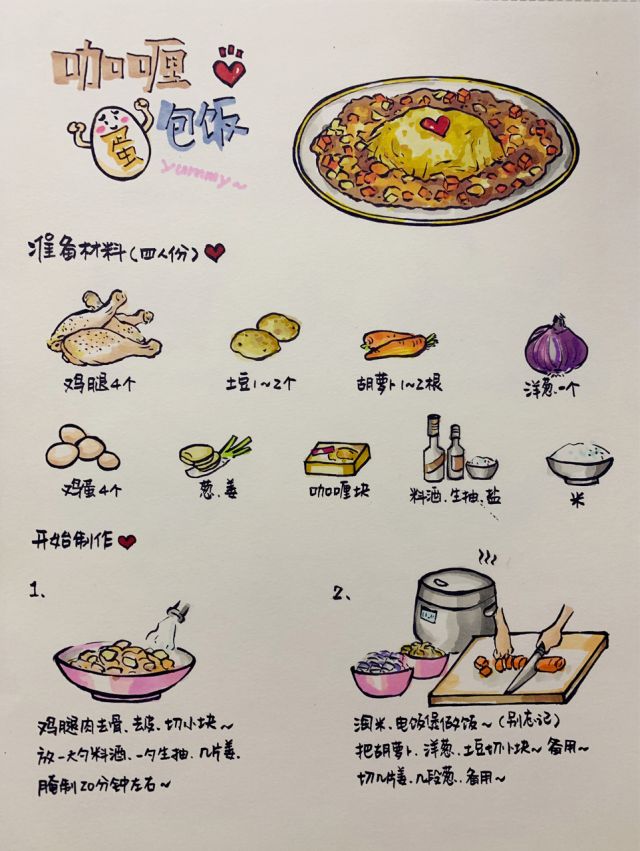 咖喱
蛋包饭
yummy~
准备材料(四人份)
鸡腿4个
土豆1~2个
胡萝卜1~2根
洋葱一个
鸡蛋4个
葱、姜
咖喱块
料酒、生抽、盐
米
开始制作
1、
鸡腿肉去骨、去皮、切小块~
放一大勺料酒、一勺生抽、几片姜、
腌制20分钟左右~
2、
淘米、电饭煲做饭~(别忘记)
把胡萝卜、洋葱、土豆切小块~备用~
切几片姜、几段葱、备用~